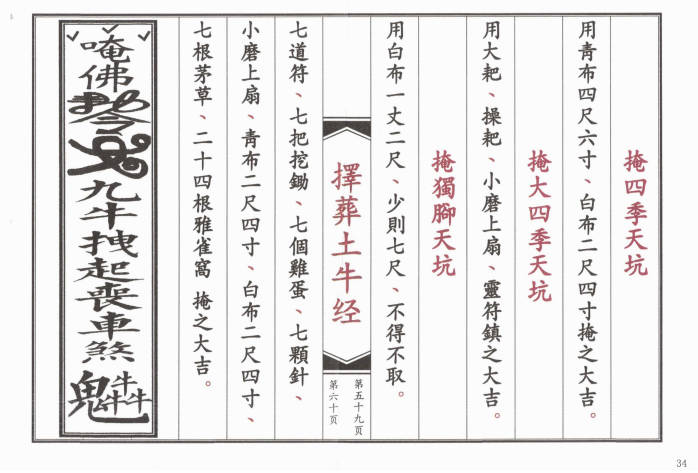 掩四季天坑
用青布四尺六寸、白布二尺四寸掩之大吉。
掩大四季天坑
用大耙、操耙、小磨上扇、靈符鎮之大吉。
掩獨腳天坑
用白布一丈二尺、少則七尺、不得不取。
擇葬土牛经
第五十九页
第六十页
七道符、七把挖鋤、七個雞蛋、七顆針、
小磨上扇、青布二尺四寸、白布二尺四寸、
七根茅草、二十四根雅雀窩 掩之大吉。
唵佛
令
九牛拽起喪車煞
鬼
牛牛牛
34